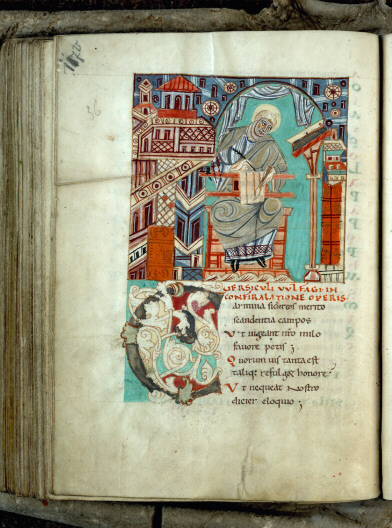 VERSICULI VULFAGI IN
CONFIRALATIONE OPERIS
Carmina sidereos merito
scandentia campos
Ut uigeant nro milo
fauore potis ;
Quorum uis tanta est
taliq; reful get honore
Ut nequeat nostro
dicier eloquio ;